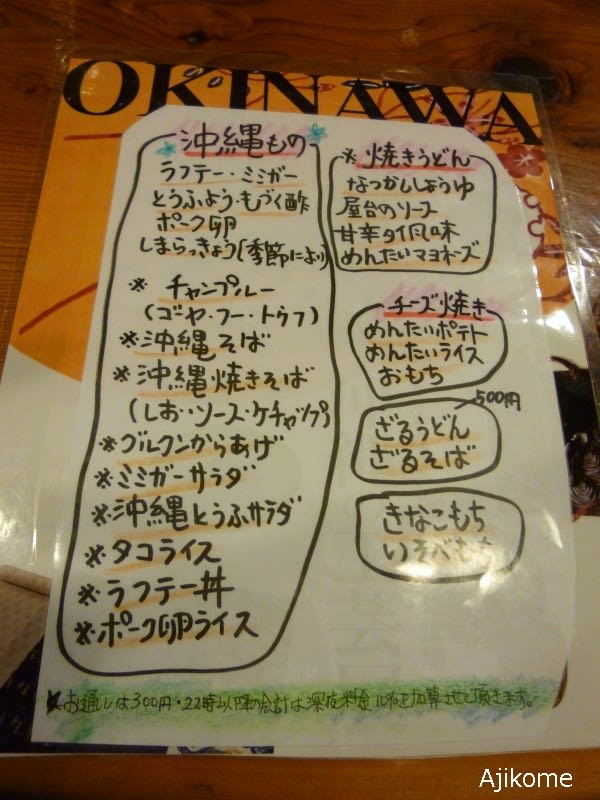 OKINAWA
沖縄もの
ラフテー・ミミガー
とうふよう・もづく酢
ポーク卵
しまらっきょう(季節により)
※ チャンプルー
(ゴーヤ・フー・トウフ)
※沖縄そば
※沖縄焼きそば
(しお・ソース・ケチャップ)
※グルクンからあげ
※ミミガーサラダ
※沖縄とうふサラダ
※タコライス
※ラフテー丼
※ポーク卵ライス
※ 焼きうどん
なつかししょうゆ
屋台のソース
甘辛タイ風味
めんたいマヨネーズ
チーズ焼き
めんたいポテト
めんたいライス
おもち
500円
ざるうどん
ざるそば
きなこもち
いそべもち
★お通しは300円・22時以降の会計は深夜料金10%を加算させて頂きます。
Ajikome